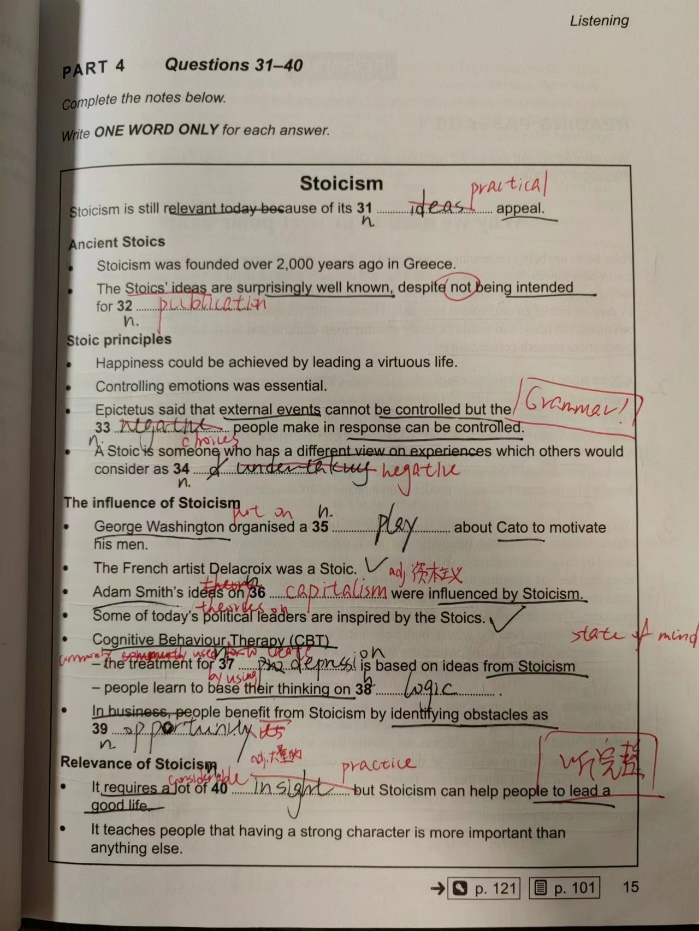 Listening
PART 4 Questions 31–40
Complete the notes below.
Write ONE WORD ONLY for each answer.
Stoicism
practical
Stoicism is still relevant today because of its 31 ideas appeal.
n.
Ancient Stoics
• Stoicism was founded over 2,000 years ago in Greece.
• The Stoics' ideas are surprisingly well known, despite not being intended
for 32 publication
n.
Stoic principles
• Happiness could be achieved by leading a virtuous life.
• Controlling emotions was essential.
• Epictetus said that external events cannot be controlled but the
Grammar!
33 negative people make in response can be controlled.
n. choices
• A Stoic is someone who has a different view on experiences which others would
consider as 34 undertaking negative
n.
The influence of Stoicism
put on n.
• George Washington organised a 35 play about Cato to motivate
his men.
• The French artist Delacroix was a Stoic.
adj 资本主义
• Adam Smith's ideas on 36 capitalism were influenced by Stoicism.
theories on
• Some of today's political leaders are inspired by the Stoics.
state of mind
• Cognitive Behaviour Therapy (CBT)
commonly used to treat
– the treatment for 37 depression is based on ideas from Stoicism
by using
– people learn to base their thinking on 38 logic
n
• In business, people benefit from Stoicism by identifying obstacles as
39 opportunities
n
adj.大量的
Relevance of Stoicism
considerable practice
听完整
• It requires a lot of 40 insight but Stoicism can help people to lead a
good life.
• It teaches people that having a strong character is more important than
anything else.
p. 121 p. 101 15